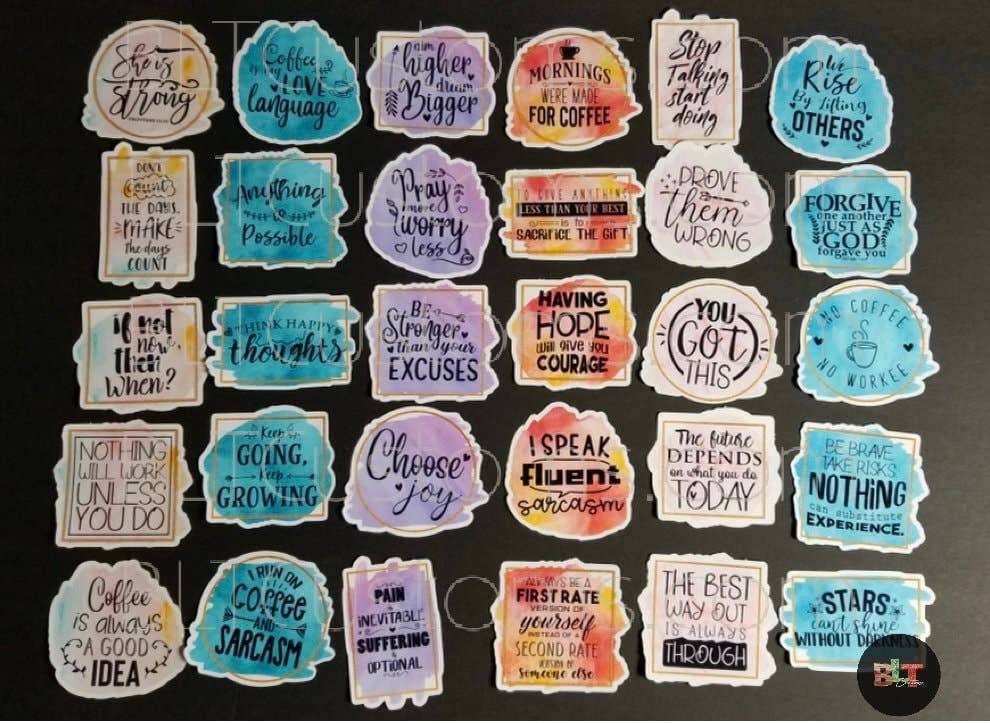 She is
Strong
PROVERBS 31:25
Coffee
is my
LOVE
language
aim
higher
dream
Bigger
MORNINGS
WERE MADE
FOR COFFEE
Stop
Talking
start
doing
We
Rise
By lifting
OTHERS
DON'T
count
THE DAYS,
MAKE
The days
COUNT
Anything
is
Possible
Pray
more
worry
less
TO GIVE ANYTHING
LESS THAN YOUR BEST
is to
SACRIFICE THE GIFT
PROVE
them
WRONG
FORGIVE
one another
JUST AS
GOD
forgave you
if not
now,
then
when?
THINK HAPPY
thoughts
BE
Stronger
than your
EXCUSES
HAVING
HOPE
will give you
COURAGE
YOU
GOT
THIS
NO COFFEE
NO WORKEE
NOTHING
WILL WORK
UNLESS
YOU DO
Keep
GOING,
Keep
GROWING
Choose
joy
I SPEAK
fluent
sarcasm
The future
DEPENDS
on what you do
TODAY
BE BRAVE
TAKE RISKS
NOTHING
can substitute
EXPERIENCE.
Coffee
IS always
A GOOD
IDEA
I RUN ON
Coffee
AND
SARCASM
PAIN
is
INEVITABLE
SUFFERING
is
OPTIONAL
ALWAYS BE A
FIRST RATE
VERSION OF
yourself
INSTEAD OF A
SECOND RATE
VERSION OF
someone else
THE BEST
WAY OUT
IS ALWAYS
THROUGH
STARS
can't shine
WITHOUT DARKNESS
BLT
BLTCustoms.com